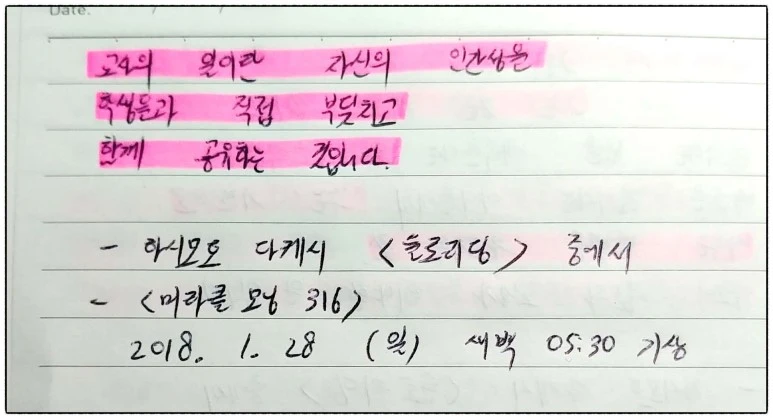 Date.
교사의 일이란 자신의 인간상을
학생들과 직접 부딪치고
함께 공유하는 것입니다.
- 하시모토 다케시 <슬로리딩> 중에서
- <미라클 모닝 316>
2018. 1. 28 (일) 새벽 05:30 기상